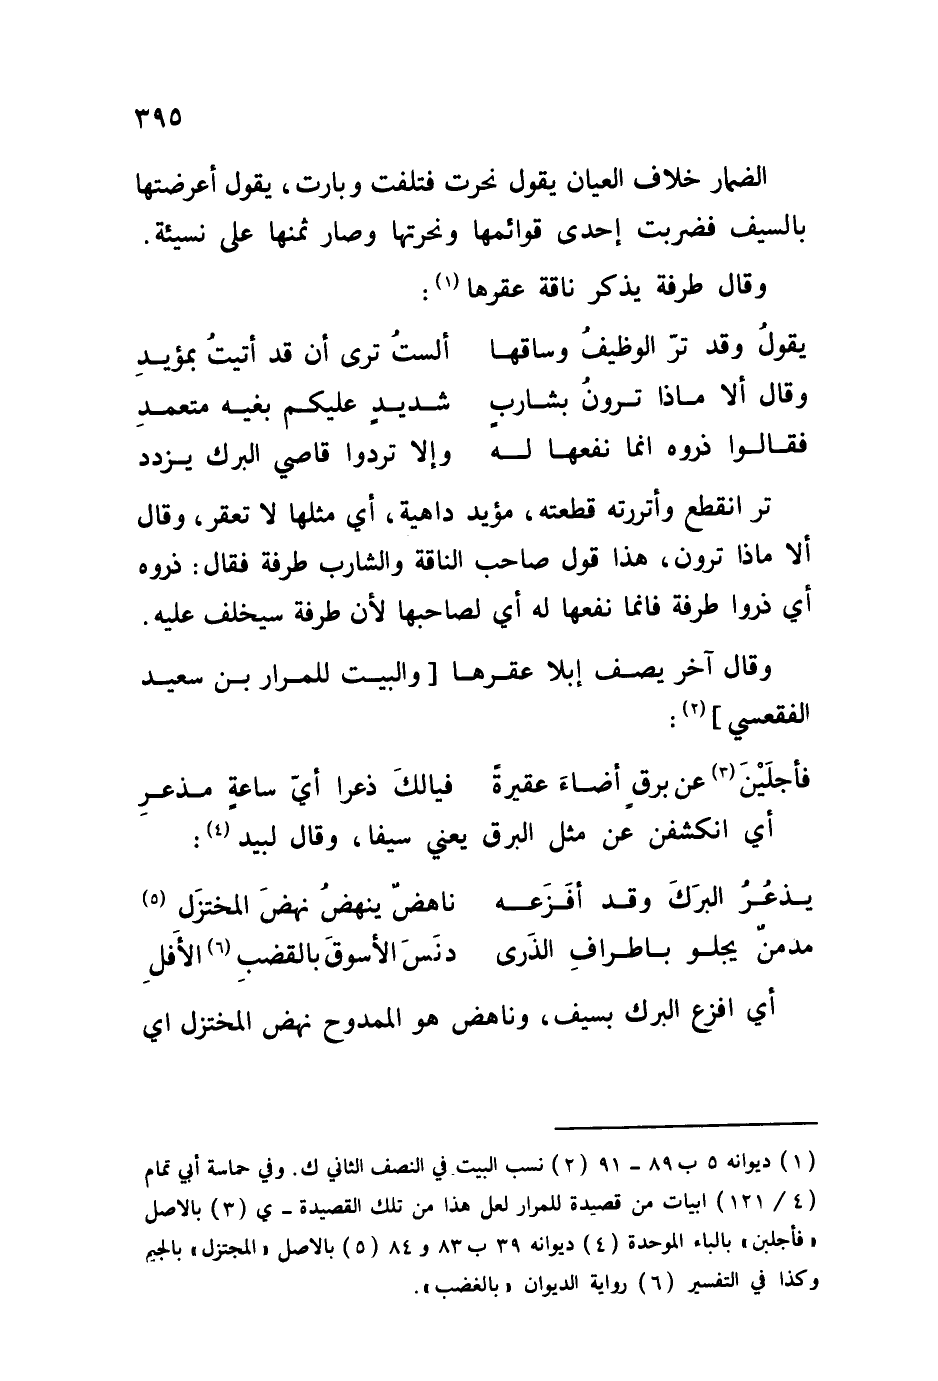 ٣٩٥
الضمار خلاف العيان يقول نحرت فتلفت وبارت، يقول أعرضتها
بالسيف فضربت إحدى قوائمها ونحرتها وصار ثمنها على نسيئة.
وقال طرفة يذكر ناقة عقرها (١) :
يقولُ وقد ترّ الوظيفُ وساقهـا ألستُ ترى أن قد أتيتُ بمؤيـدِ
وقال ألا مـاذا تـرونُ بشـاربٍ شـديـدٍ عليكـم بغيـه متعمـدِ
فقـالـوا ذروه انما نفعهـا لـه وإلا تردوا قاصي البرك يـزدد
تر انقطع وأتررته قطعته، مؤيد داهية، أي مثلها لا تعقر، وقال
ألا ماذا ترون، هذا قول صاحب الناقة والشارب طرفة فقال: ذروه
أي ذروا طرفة فانما نفعها له أي لصاحبها لأن طرفة سيخلف عليه.
وقال آخر يصـف إبلا عقـرهـا [ والبيـت للمـرار بـن سعيـد
الفقعسي ] (٢) :
فأجلَيْنَ (٣) عن برقٍ أضـاءَ عقيرةً فيالكَ ذعرا أيّ ساعةٍ مـذعـرِ
أي انكشفن عن مثل البرق يعني سيفا، وقال لبيد (٤) :
يـذعُـرُ البرَكَ وقـد أفَـزَعـه ناهضٌ ينهضُ نهضَ المختزَل (٥)
مدمنٌ يجلـو بـاطـرافِ الذَرى دنَسَ الأسوقَ بالقضبِ (٦) الأَفَلِ
أي افزع البرك بسيف، وناهض هو الممدوح نهض المختزل اي
(١) ديوانه ٥ ب ٨٩ - ٩١ (٢) نسب البيت في النصف الثاني ك. وفي حماسة أبي تمام
(٤ / ١٢١) ابيات من قصيدة للمرار لعل هذا من تلك القصيدة - ي (٣) بالاصل
« فأجلبن » بالباء الموحدة (٤) ديوانه ٣٩ ب ٨٣ و ٨٤ (٥) بالاصل « المجتزل » بالجيم
وكذا في التفسير (٦) رواية الديوان « بالغضب ».